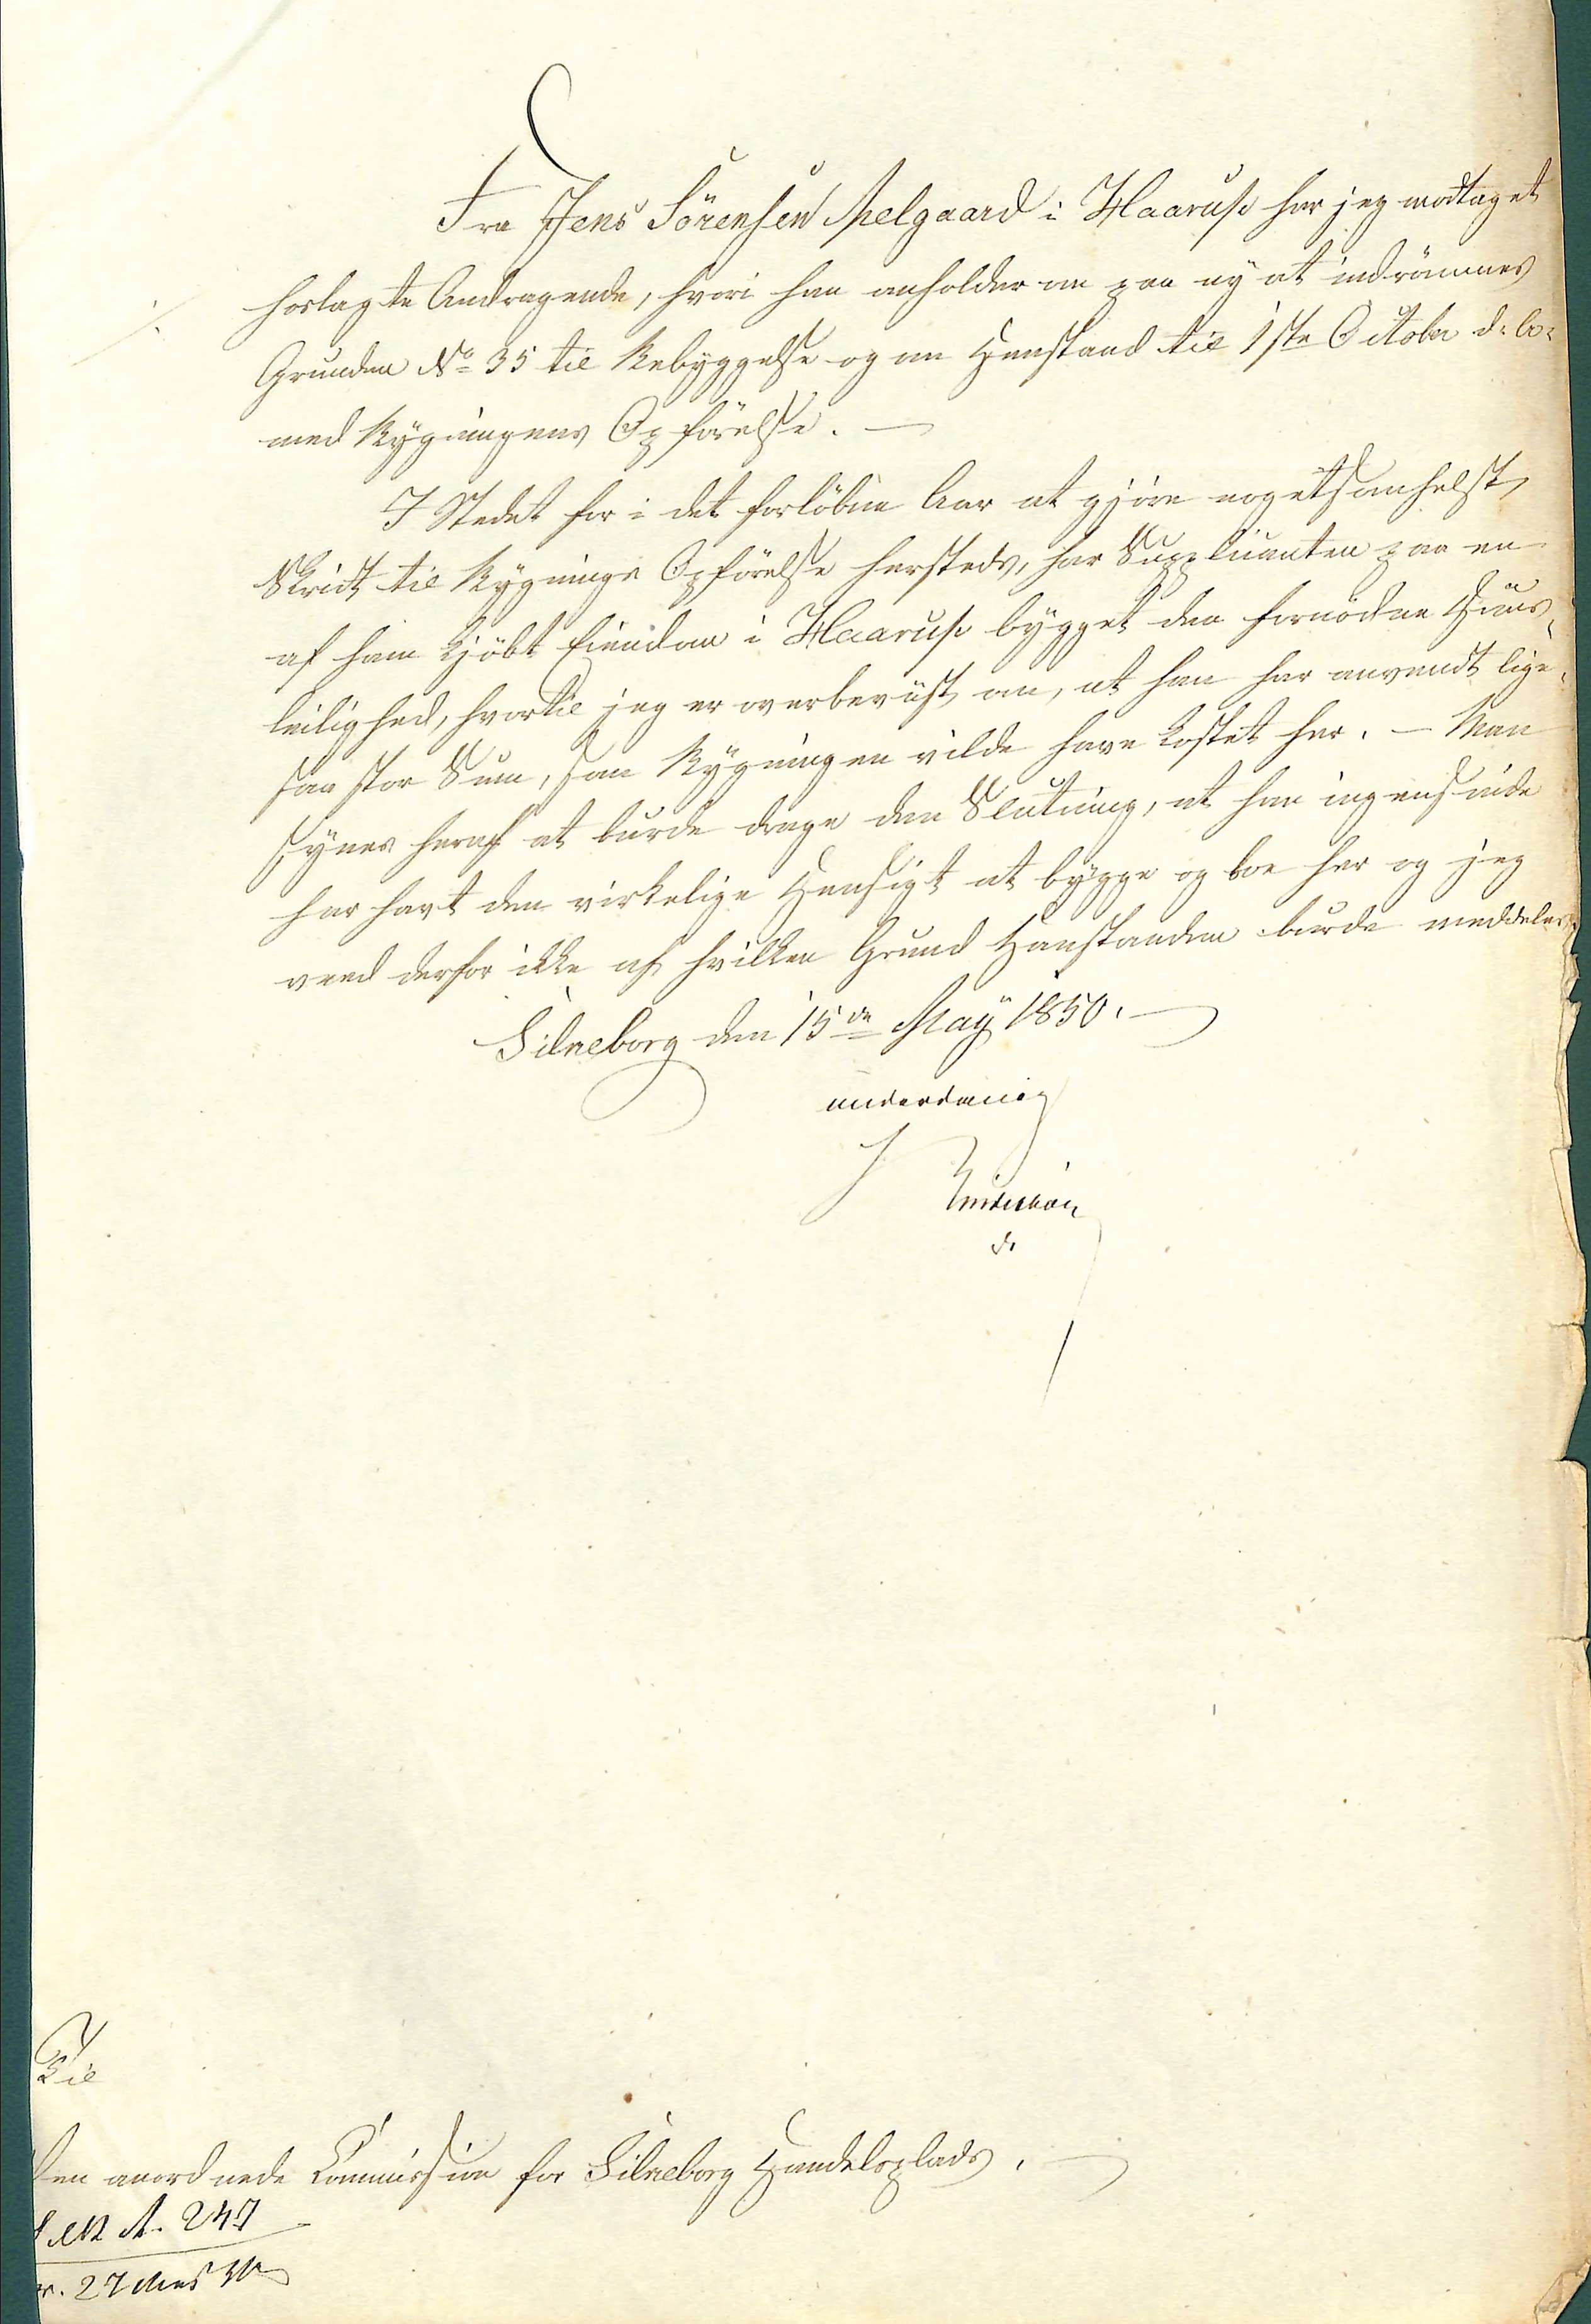 Fra Jens Sörensen Melgaard i Haarup har jeg modtaget
hoslagte Andragende, hvori han anholder om paa ny at indrömmes
Grunden No 35 til Bebyggelse og om Henstand til 1ste October d. A.
med Bygningens Opförelse. —
I Stedet for i det forlöbne Aar at gjöre nogetsomhelst
Skridt til Bygnings Opförelse hersteds, har Supplicanten paa en
af ham kjöbt Eiendom i Haarup bygget den fornödne Huus-
leilighed, hvortil jeg er overbeviist om, at han har anvendt lige
saa stor Sum, som Bygningen vilde have kostet her. — Man
synes heraf at burde drage den Slutning, at han ingensinde
har havt den virkelige Hensigt at bygge og boe her og jeg
veed derfor ikke af hvilken Grund Henstanden burde meddeles.
Silkeborg den 15de May 1850. —
underdanig
Til
Den anordnede Commission for Silkeborg Handelsplads. —
A. 247
27